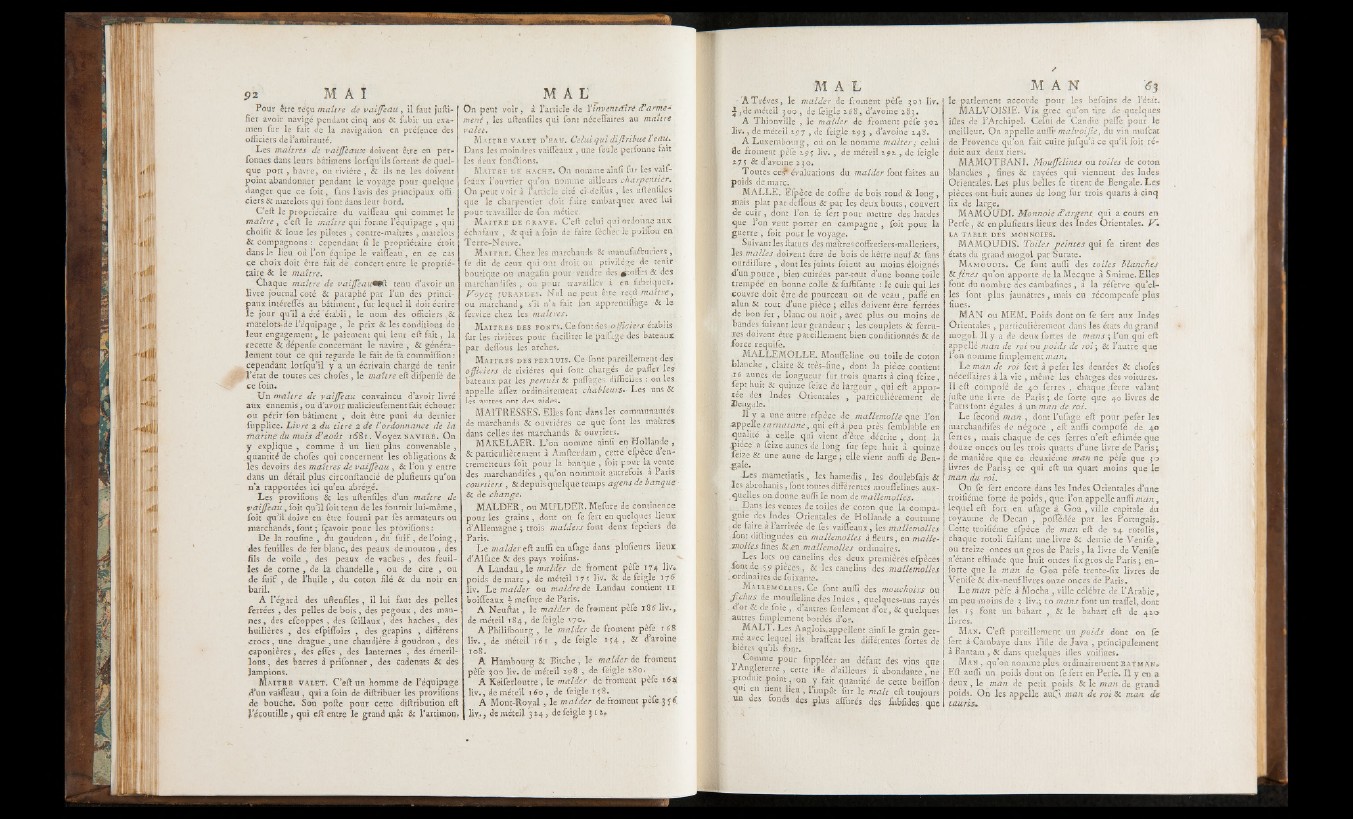 92 M A I M A L
Pour être reçu maître de vaisseau, il faut justi-
fier avoir navigé pendant cinq ans & subir un exa-
men sur le fait de la navigation en présence des
officiers de l'amirauté.
Les maîtres de vaisseaux doivent être en per-
sonnes dans leurs bâtimens lorsqu'ils sortent de quel-
que port, havre, ou rivière, & ils ne les doivent
point abandonner pendant le voyage pour quelque
danger que ce soit, sans l'avis des principaux offi-
ciers & matelots qui sont dans leur bord.
C'est le propriétaire du vaisseau qui commet le
maître, c'est le maître qui forme l'équipage, qui
choisit & loue les pilotes, contre-maîtres, matelots
& compagnons : cependant si le propriétaire étoit
dans le lieu où l'on équipe le vaisseau, en ce cas
ce choix doit être fait de concert entre le proprié-
taire & le maître.
Chaque maître de vaisseau est tenu d'avoir un
livre journal coté & paraphé par l'un des princi-
paux intéressés au bâtiment, sur lequel il doit écrire
le jour qu'il a été établi, le nom des officiers &
matelots de l'équipage, le prix & les conditions de
leur engagement, le paiement qui leur est fait, la
recette & dépense concernant le navire, & généra-
lement tout ce qui regarde le fait de sa commission :
cependant lorsqu'il y a un écrivain chargé de tenir
l'état de toutes ces choses, le maître est dispensé de
ce soin.
Un maître de vaisseau convaincu d'avoir livré
aux ennemis, ou d'avoir malicieusement fait échouer
ou périr son bâtiment, doit être puni du dernier
supplice. Livre 2 du titre 2 de l'ordonnance de la
marine du mois d'août 1681. Voyez NAVIRE. On
y explique, comme à un lieu plus convenable,
quantité de choses qui concernent les obligations &
les devoirs des maîtres de vaisseau, & l'on y entre
dans un détail plus circonstancié de plusieurs qu'on
n'a rapportées ici qu'en abrégé.
Les provisions & les ustensiles d'un maître de
vaisseau, soit qu'il soit tenu de les fournir lui-même,
soit qu'il doive en être fourni par ses armateurs ou
marchands, sont ; sçavoir pour les provisions :
De la rousine, du goudran, du suif, de l'oing,
des feuilles de fer blanc, des peaux de mouton, des
fils de voile, des peaux de vaches, des feuil-
les de corne, de la chandelle, ou de cire, ou
de suif, de l'huile, du coton filé & du noir en
baril.
A l'égard des ustensiles, il lui faut des pelles
ferrées, des pelles de bois, des pegoux, des man-
nes, des escoppes, des seillaux, des haches, des
huilières, des espissoirs, des grapins, différens
crocs, une drague, une chaudière à goudron, des
caponières, des esses, des lanternes, des émeril-
lons, des barres à prisonner, des cadenats & des
lampions.
MAITRE VALET. C'est un homme de l'équipage
d'un vaisseau, qui a soin de distribuer les provisions
de bouche. Son poste pour cette distribution est
l'écoutille, qui est entre le grand mât & l'artimon.
On peut voir, à l'article de l'inventaire d'arme-
ment, les ustensiles qui sont nécessaires au maître
valet.
MAITRE VALET D'EAU. Celui qui distribue l'eau.
Dans les moindres vaisseaux, une seule personne fait
les deux fonctions.
MAITRE DE HACHE. On nomme ainsi sur les vais-
seaux l'ouvrier qu'on nomme ailleurs charpentier.
On peut voir à l'article cité ci-dessus, les ustensiles
que le charpentier doit faire embarquer avec lui
pour travailler de son métier.
MAITRE DE GRAVE. C'est celui qui ordonne aux
échafaux, & qui a soin de faire sécher le poisson en
Terre-Neuve.
MAITRE. Chez les marchands & manufacturiers,
se dit de ceux qui ont droit ou privilège de tenir
boutique ou magasin pour vendre des étoffes & des
marchandises, ou pour travailler à en fabriquer.
Voyez JURANDES. Nul ne peut être reçu maître,
ou marchand, s'il n'a fait son apprentissage & le
service chez les maîtres.
MAITRES DES PONTS. Ce sont des officiers établis
sur les rivières pour faciliter le passage des bateaux
par dessous les arches.
MAITRES DES PERTUIS. Ce sont pareillement des
officiers de rivières qui sont chargés de passer les
bateaux par les pertuis & passages difficiles : on les
appelle assez ordinairement chableurs. Les uns &
les autres ont des aides.
MAITRESSES. Elles sont dans les communautés
de marchands & ouvrières ce que sont les maîtres
dans celles des marchands & ouvriers.
MAKELAER. L'on nomme ainsi en Hollande,
& particulièrement à Amsterdam, cette espèce d'en-
tremetteurs soit pour la banque, soit pour la vente
des marchandises, qu'on nommoit autrefois à Paris
courtiers, & depuis quelque temps agens de banque
& de change.
MALDER, ou MULDER. Mesure de continence
pour les grains, dont on se sert en quelques lieux
d'Allemagne ; trois malders font deux septiers de
Paris.
Le malder est aussi en usage dans plusieurs lieux
d'Alsace & des pays voisins.
A Landau, le malder de froment pèse 174 liv.
poids de marc, de méteil 171 liv. & de seigle 176
liv. Le malder ou maldre de Landau contient 11
boisseaux ¾ mesure de Paris.
A Neustat, le malder de froment pèse 186 liv.,
de méteil 184, de seigle 170.
A Philisbourg, le malder de froment pèse 168
liv., de méteil 161, de seigle 154, & d'avoine
108.
A Hambourg & Bitche, le malder de froment
pèse 300 liv. de méteil 298, de seigle 280.
A Keiserloutre, le malder de froment pèse 164
liv., de méteil 160, de seigle 158.
A Mont-Royal, le malder de froment pèse 356
liv., de méteil 324, de seigle 312.
M A L M A N 63
A Trèves, le malder de froment pèse 301 liv.
¾, de méteil 300, de seigle 268, d'avoine 283.
A Thionville, le malder de froment pèse 302
liv., de méteil 297, de seigle 293, d'avoine 248.
A Luxembourg, où on le nomme malter ; celui
de froment pèse 295 liv., de méteil 292, de seigle
275 & d'avoine 230.
Toutes ces évaluations du malder sont faites au
poids de marc.
MALLE. Espèce de coffre de bois rond & long,
mais plat par dessous & par les deux bouts, couvert
de cuir, dont l'on se sert pour mettre des hardes
que l'on veut porter en campagne, soit pour la
guerre, soit pour le voyage.
Suivant les statuts des maîtres coffretiers-malletiers,
les malles doivent être de bois de hêtre neuf & sans
ourdissure, dont les joints soient au moins éloignés
d'un pouce, bien cuirées par-tout d'une bonne toile
trempée en bonne colle & suffisante : le cuir qui les
couvre doit être de pourceau ou de veau, passé en
alun & tout d'une pièce ; elles doivent être ferrées
de bon fer, blanc ou noir, avec plus ou moins de
bandes suivant leur grandeur ; les couplets & serru-
res doivent être pareillement bien conditionnés & de
force requise.
MALLEMOLLE. Mousseline ou toile de coton
blanche, claire & très-fine, dont la pièce contient
16 aunes de longueur sur trois quarts à cinq seize,
sept huit & quinze seize de largeur, qui est appor-
tée des Indes Orientales, particulièrement de
Bengale.
Il y a une autre espèce de mallemolle que l'on
appelle tarnatane, qui est à peu près semblable en
qualité à celle qui vient d'être décrite, dont la
pièce a seize aunes de long sur sept huit à quinze
seize & une aune de large ; elle vient aussi de Ben-
gale.
Les mamotiatis, les hamedis, les doulebsais &
les abrohanis, sont toutes différentes mousselines aux-
quelles on donne aussi le nom de mallemolles.
Dans les ventes de toiles de coton que la compa-
gnie des Indes Orientales de Hollande a coutume
de faire à l'arrivée de ses vaisseaux, les mallemolles
sont distinguées en mallemolles à fleurs, en malle-
molles fines & en mallemolles ordinaires.
Les lots ou canelins des deux premières espèces
sont de 50 pièces, & les canelins des mallemolles
ordinaires de soixante.
MALLEMOLLES. Ce sont aussi des mouchoirs ou
fichus de mousseline des Indes, quelques-uns rayés
d'or & de soie, d'autres seulement d'or, & quelques
autres simplement bordés d'or.
MALT. Les Anglois appellent ainsi le grain ger-
mé avec lequel ils brassent les différentes sortes de
bières qu'ils font.
Comme pour suppléer au défaut des vins que
l'Angleterre, cette isle d'ailleurs si abondante, ne
produit point, on y fait quantité de cette boisson
qui en tient lieu, l'impôt sur le malt est toujours
un des fonds des plus assurés des subsides que
le parlement accorde pour les besoins de l'état.
MALVOISIE. Vin grec qu'on tire de quelques
isles de l'Archipel. Celui de Candie passe pour le
meilleur. On appelle aussi malvoisie, du vin muscat
de Provence qu'on fait cuire jusqu'à ce qu'il soit ré-
duit aux deux tiers.
MAMOTBANI. Mousselines ou toiles de coton
blanches, fines & rayées qui viennent des Indes
Orientales. Les plus belles se tirent de Bengale. Les
pièces ont huit aunes de long sur trois quarts à cinq
six de large.
MAMOUDI. Monnoie d'argent qui a cours en
Perse, & en plusieurs lieux des Indes Orientales. V.
LA TABLE DES MONNOIES.
MAMOUDIS. Toiles peintes qui se tirent des
états du grand mogol par Surate.
MAMOUDIS. Ce sont aussi des toiles blanches
& fines qu'on apporte de la Mecque à Smirne. Elles
sont du nombre des cambasines, à la réserve qu'el-
les sont plus jaunâtres, mais en récompense plus
fines.
MAN ou MEM. Poids dont on se sert aux Indes
Orientales, particulièrement dans les états du grand
mogol. Il y a de deux sortes de mans ; l'un qui est
appellé man de roi ou poids de roi, & l'autre que
l'on nomme simplement man.
Le man de roi sert à peser les denrées & choses
nécessaires à la vie, même les charges des voitures.
Il est composé de 40 serres, chaque serre valant
juste une livre de Paris ; de sorte que 40 livres de
Paris sont égales à un man de roi.
Le second man, dont l'usage est pour peser les
marchandises de négoce, est aussi composé de 40
serres, mais chaque de ces serres n'est estimée que
douze onces ou les trois quarts d'une livre de Paris ;
de manière que ce deuxième man ne pèse que 30
livres de Paris ; ce qui est un quart moins que le
man du roi.
On se sert encore dans les Indes Orientales d'une
troisième sorte de poids, que l'on appelle aussi man,
lequel est fort en usage à Goa, ville capitale du
royaume de Decan, possédée par les Portugais.
Cette troisième espèce de man est de 24 rotolis,
chaque rotoli faisant une livre & demie de Venise,
ou treize onces un gros de Paris, la livre de Venise
n'étant estimée que huit onces six gros de Paris ; en-
sorte que le man de Goa pèse trente-six livres de
Venise & dix-neuf livres onze onces de Paris.
Le man pèse à Mocha, ville célèbre de l'Arabie,
un peu moins de 3 liv., 10 mans font un trassel, dont
les 15 font un bahart, & le bahart est de 420
livres.
MAN. C'est pareillement un poids dont on se
sert à Cambaye dans l'isle de Java, principalement
à Bantam, & dans quelques isles voisines.
MAN, qu'on nomme plus ordinairement BATMAN.
Est aussi un poids dont on se sert en Perse. Il y en a
deux, le man de petit poids & le man de grand
poids. On les appelle aussi man de roi & man de
tauris.